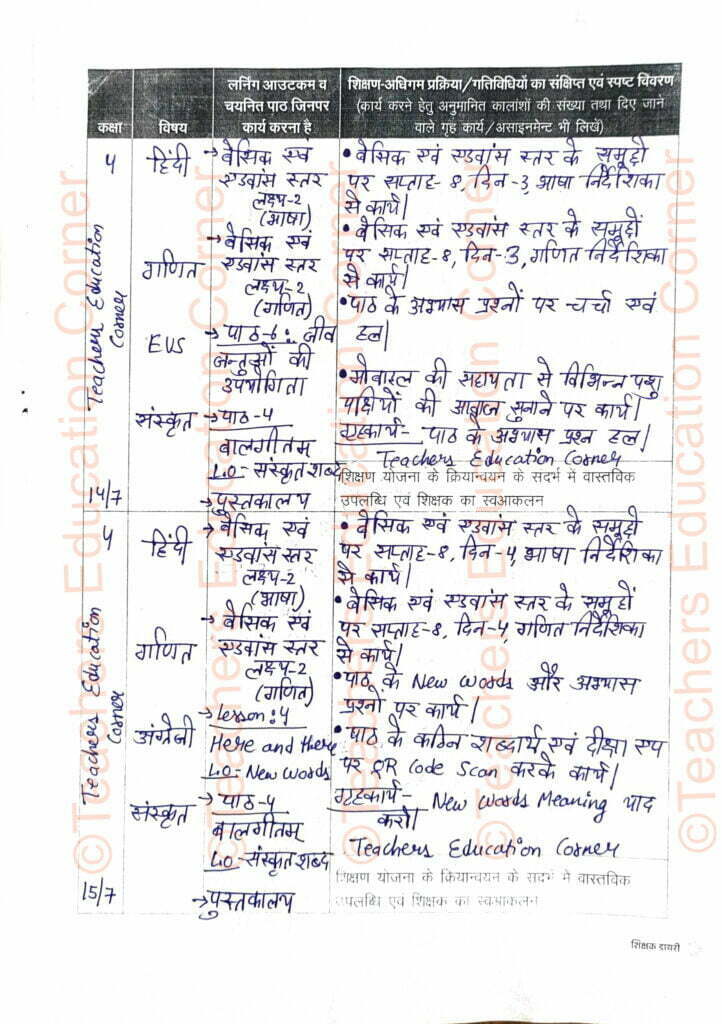 कक्षा
विषय
लर्निंग आउटकम व
चयनित पाठ जिनपर
कार्य करना है
शिक्षण-अधिगम प्रक्रिया/गतिविधियों का संक्षिप्त एवं स्पष्ट विवरण
(कार्य करने हेतु अनुमानित कालांशों की संख्या तथा दिए जाने
वाले गृह कार्य/असाइनमेंट भी लिखें)
4
हिंदी
→ बेसिक एवं
एडवांस स्तर
लक्ष्य-2
(भाषा)
• बेसिक एवं एडवांस स्तर के समूहों
पर सप्ताह-8, दिन-3, भाषा निर्देशिका
से कार्य|
गणित
→ बेसिक एवं
एडवांस स्तर
लक्ष्य-2
(गणित)
• बेसिक एवं एडवांस स्तर के समूहों
पर सप्ताह-8, दिन-3, गणित निर्देशिका
से कार्य|
EVS
→ पाठ-6: जीव
जन्तुओं की
उपयोगिता
• पाठ के अभ्यास प्रश्नों पर चर्चा एवं
हल|
• मोबाइल की सहायता से विभिन्न पशु
पक्षियों की आवाज सुनाने पर कार्य|
संस्कृत
→ पाठ-4
बालगीतम्
L.O- संस्कृत शब्द
→ पुस्तकालय
गृहकार्य- पाठ के अभ्यास प्रश्न हल|
Teachers Education Corner
शिक्षण योजना के क्रियान्वयन के सदर्भ मे वास्तविक
उपलब्धि एवं शिक्षक का स्वआकलन
14/7
4
हिंदी
→ बेसिक एवं
एडवांस स्तर
लक्ष्य-2
(भाषा)
• बेसिक एवं एडवांस स्तर के समूहों
पर सप्ताह-8, दिन-4, भाषा निर्देशिका
से कार्य|
गणित
→ बेसिक एवं
एडवांस स्तर
लक्ष्य-2
(गणित)
• बेसिक एवं एडवांस स्तर के समूहों
पर सप्ताह-8, दिन-4, गणित निर्देशिका
से कार्य|
अंग्रेजी
→ lesson:4
Here and there
L.O- New words
• पाठ के New words और अभ्यास
प्रश्नों पर कार्य|
• पाठ के कठिन शब्दार्थ एवं दीक्षा एप
पर QR Code Scan करके कार्य|
संस्कृत
→ पाठ-4
बालगीतम्
L.O-संस्कृत शब्द
→ पुस्तकालय
गृहकार्य- New words Meaning याद
करो|
Teachers Education Corner
शिक्षण योजना के क्रियान्वयन के सदर्भ मे वास्तविक
उपलब्धि एवं शिक्षक का स्वआकलन
15/7
शिक्षक डायरी
Teachers Education
Corner
Teachers Education
Corner
©Teachers Education Corner
©Teachers Education Corner
©Teachers Education Corner
©Teachers Education Corner
©Teachers Education Corner